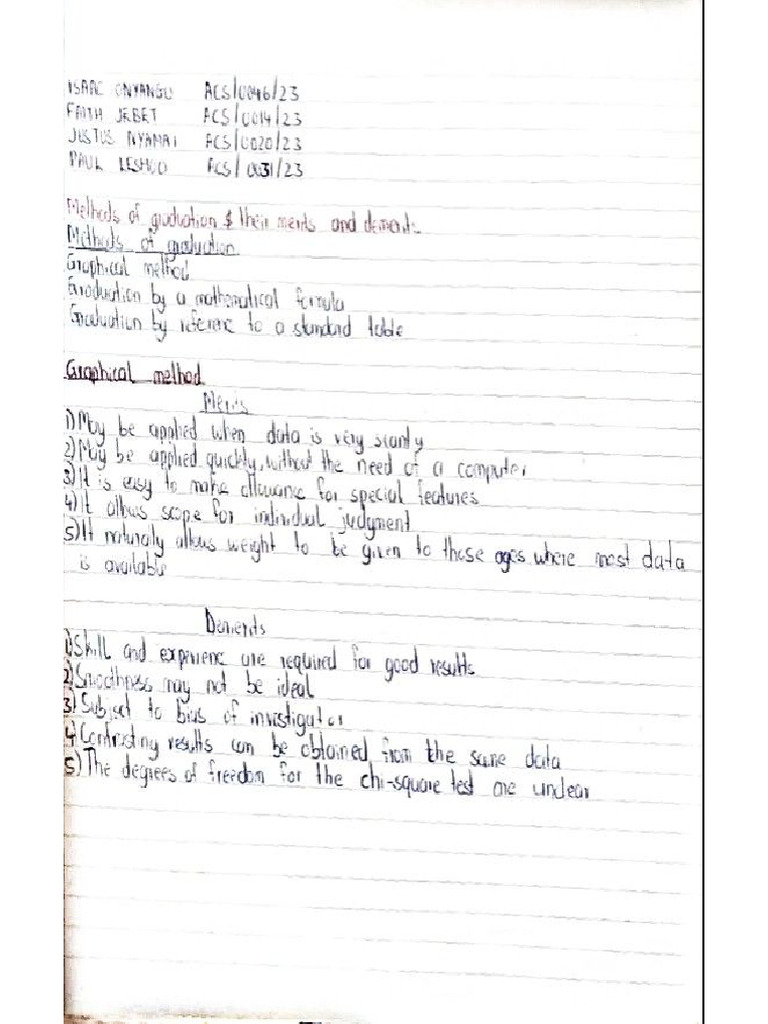 ISAAC ONYANGO ACS/0046/23
FAITH JEBET ACS/0014/23
JUSTUS NYAMAI ACS/0020/23
PAUL LESHOO ACS/0031/23
Methods of graduation & their merits and demerits
Methods of graduation
Graphical method
Graduation by a mathematical formula
Graduation by reference to a standard table
Graphical method
Merits
1) May be applied when data is very scanty
2) May be applied quickly, without the need of a computer
3) It is easy to make allowance for special features
4) It allows scope for individual judgment
5) It naturally allows weight to be given to those ages where most data
is available
Demerits
1) Skill and experience are required for good results
2) Smoothness may not be ideal
3) Subject to bias of investigator
4) Contrasting results can be obtained from the same data
5) The degrees of freedom for the chi-square test are unclear